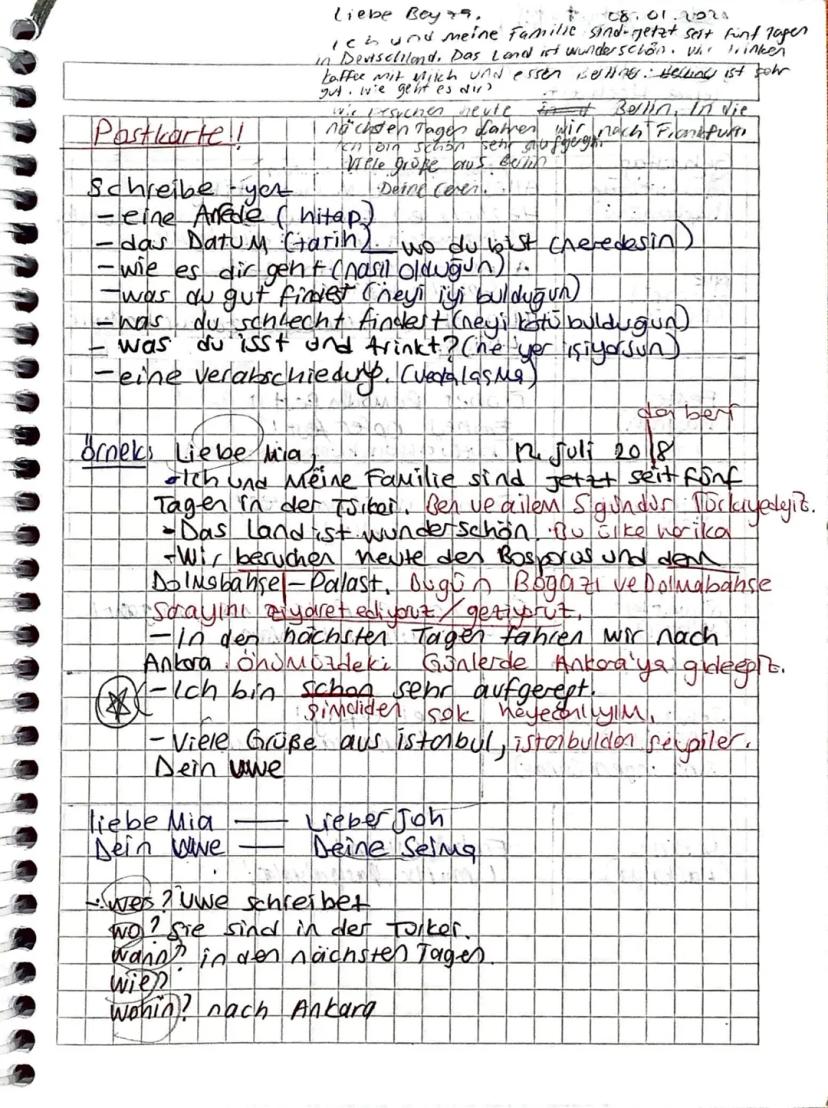 Liebe Beyza, 08.01.202
Ich und meine Familie sind jetzt seit fünf Tagen
in Deutschland. Das Land ist wunderschön. Wir trinken
kaffee mit Milch und essen Berliner. ist sehr
gut. Wie geht es dir?
Wir besuchen heute Berlin. In die
nächsten Tagen fahren wir nach Frankfurt.
Ich bin schön sehr aufgeregt.
Viele grüße aus Berlin
Deine Ceren.
Postkarte!
Schreibe - yaz
- eine Anrede (hitap)
- das Datum (tarih) wo du bist (neredesin)
- wie es dir geht (nasıl olduğun).
- was du gut findest (neyi iyi bulduğun)
- was du schlecht findest (neyi kötü bulduğun)
- was du isst und trinkt? (ne yer içiyorsun)
- eine verabschiedung. (vedalaşma)
örnek: Liebe Mia, 12. Juli 2018
- Ich und Meine Familie sind jetzt seit fünf
Tagen in der Türkei. Ben ve ailem 5 gündür Türkiyedeyiz.
- Das Land ist wunderschön. Bu ülke harika
- Wir besuchen heute den Bosporus und dem
Dolmabahse - Palast. Bugün Boğazı ve Dolmabahse
Sarayını ziyaret ediyoruz / geziyoruz.
- In den nächsten Tagen fahren wir nach
Ankara. Önümüzdeki Günlerde Ankara'ya gideceğiz.
- Ich bin schon sehr aufgeregt.
şimdiden çok heyecanlıyım.
- Viele Grüße aus istanbul, istanbuldan sevgiler.
Dein Uwe
liebe Mia — Lieber Joh
Dein Uwe — Deine Selma
- wer? Uwe schreibet
wo? Sie sind in der Türkei.
wann? in den nächsten Tagen.
wie?
wohin? nach Ankara